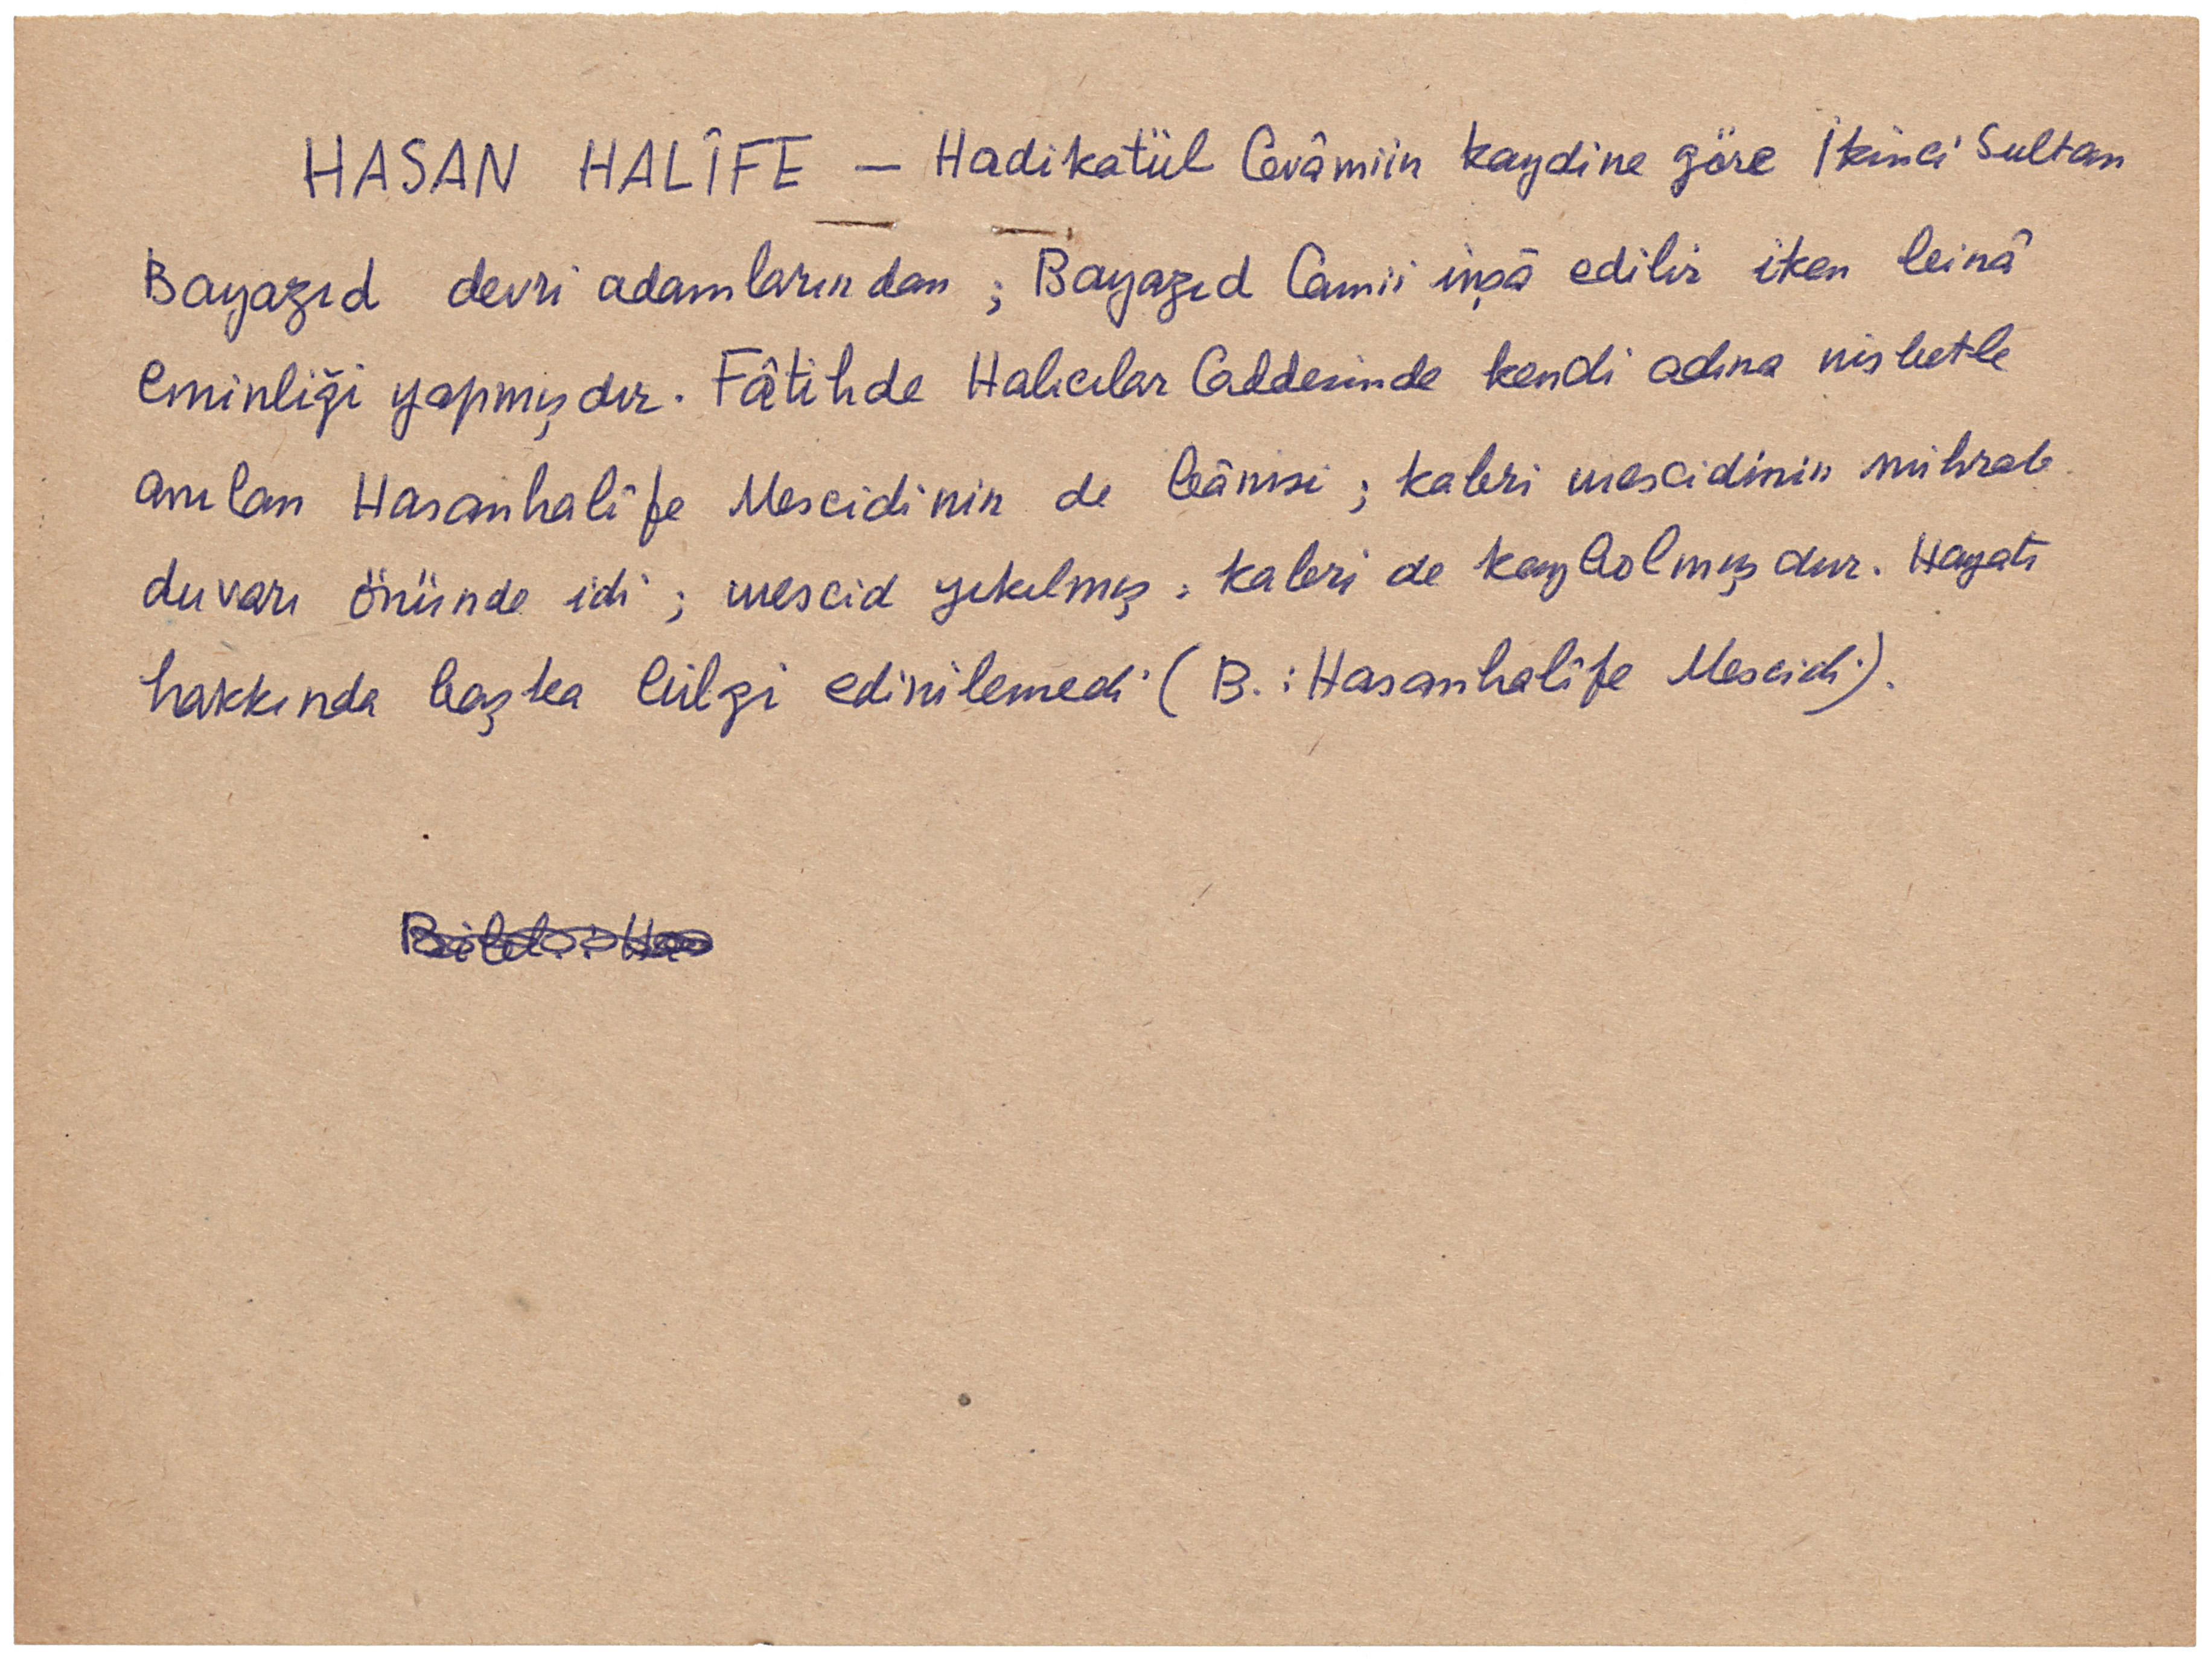 HASAN HALÎFE — Hadikatül Cevâmiin kaydine göre İkinci Sultan
Bayazıd devri adamlarından ; Bayazıd Camii inşâ edilir iken binâ
eminliği yapmışdır. Fâtihde Halıcılar Caddesinde kendi adına nisbetle
anılan Hasanhalîfe Mescidinin de bânisi ; kabri mescidinin mihrab
duvarı önünde idi ; mescid yıkılmış, kabri de kaybolmuşdur. Hayatı
hakkında başka bilgi edinilemedi (B. : Hasanhalîfe Mescidi).